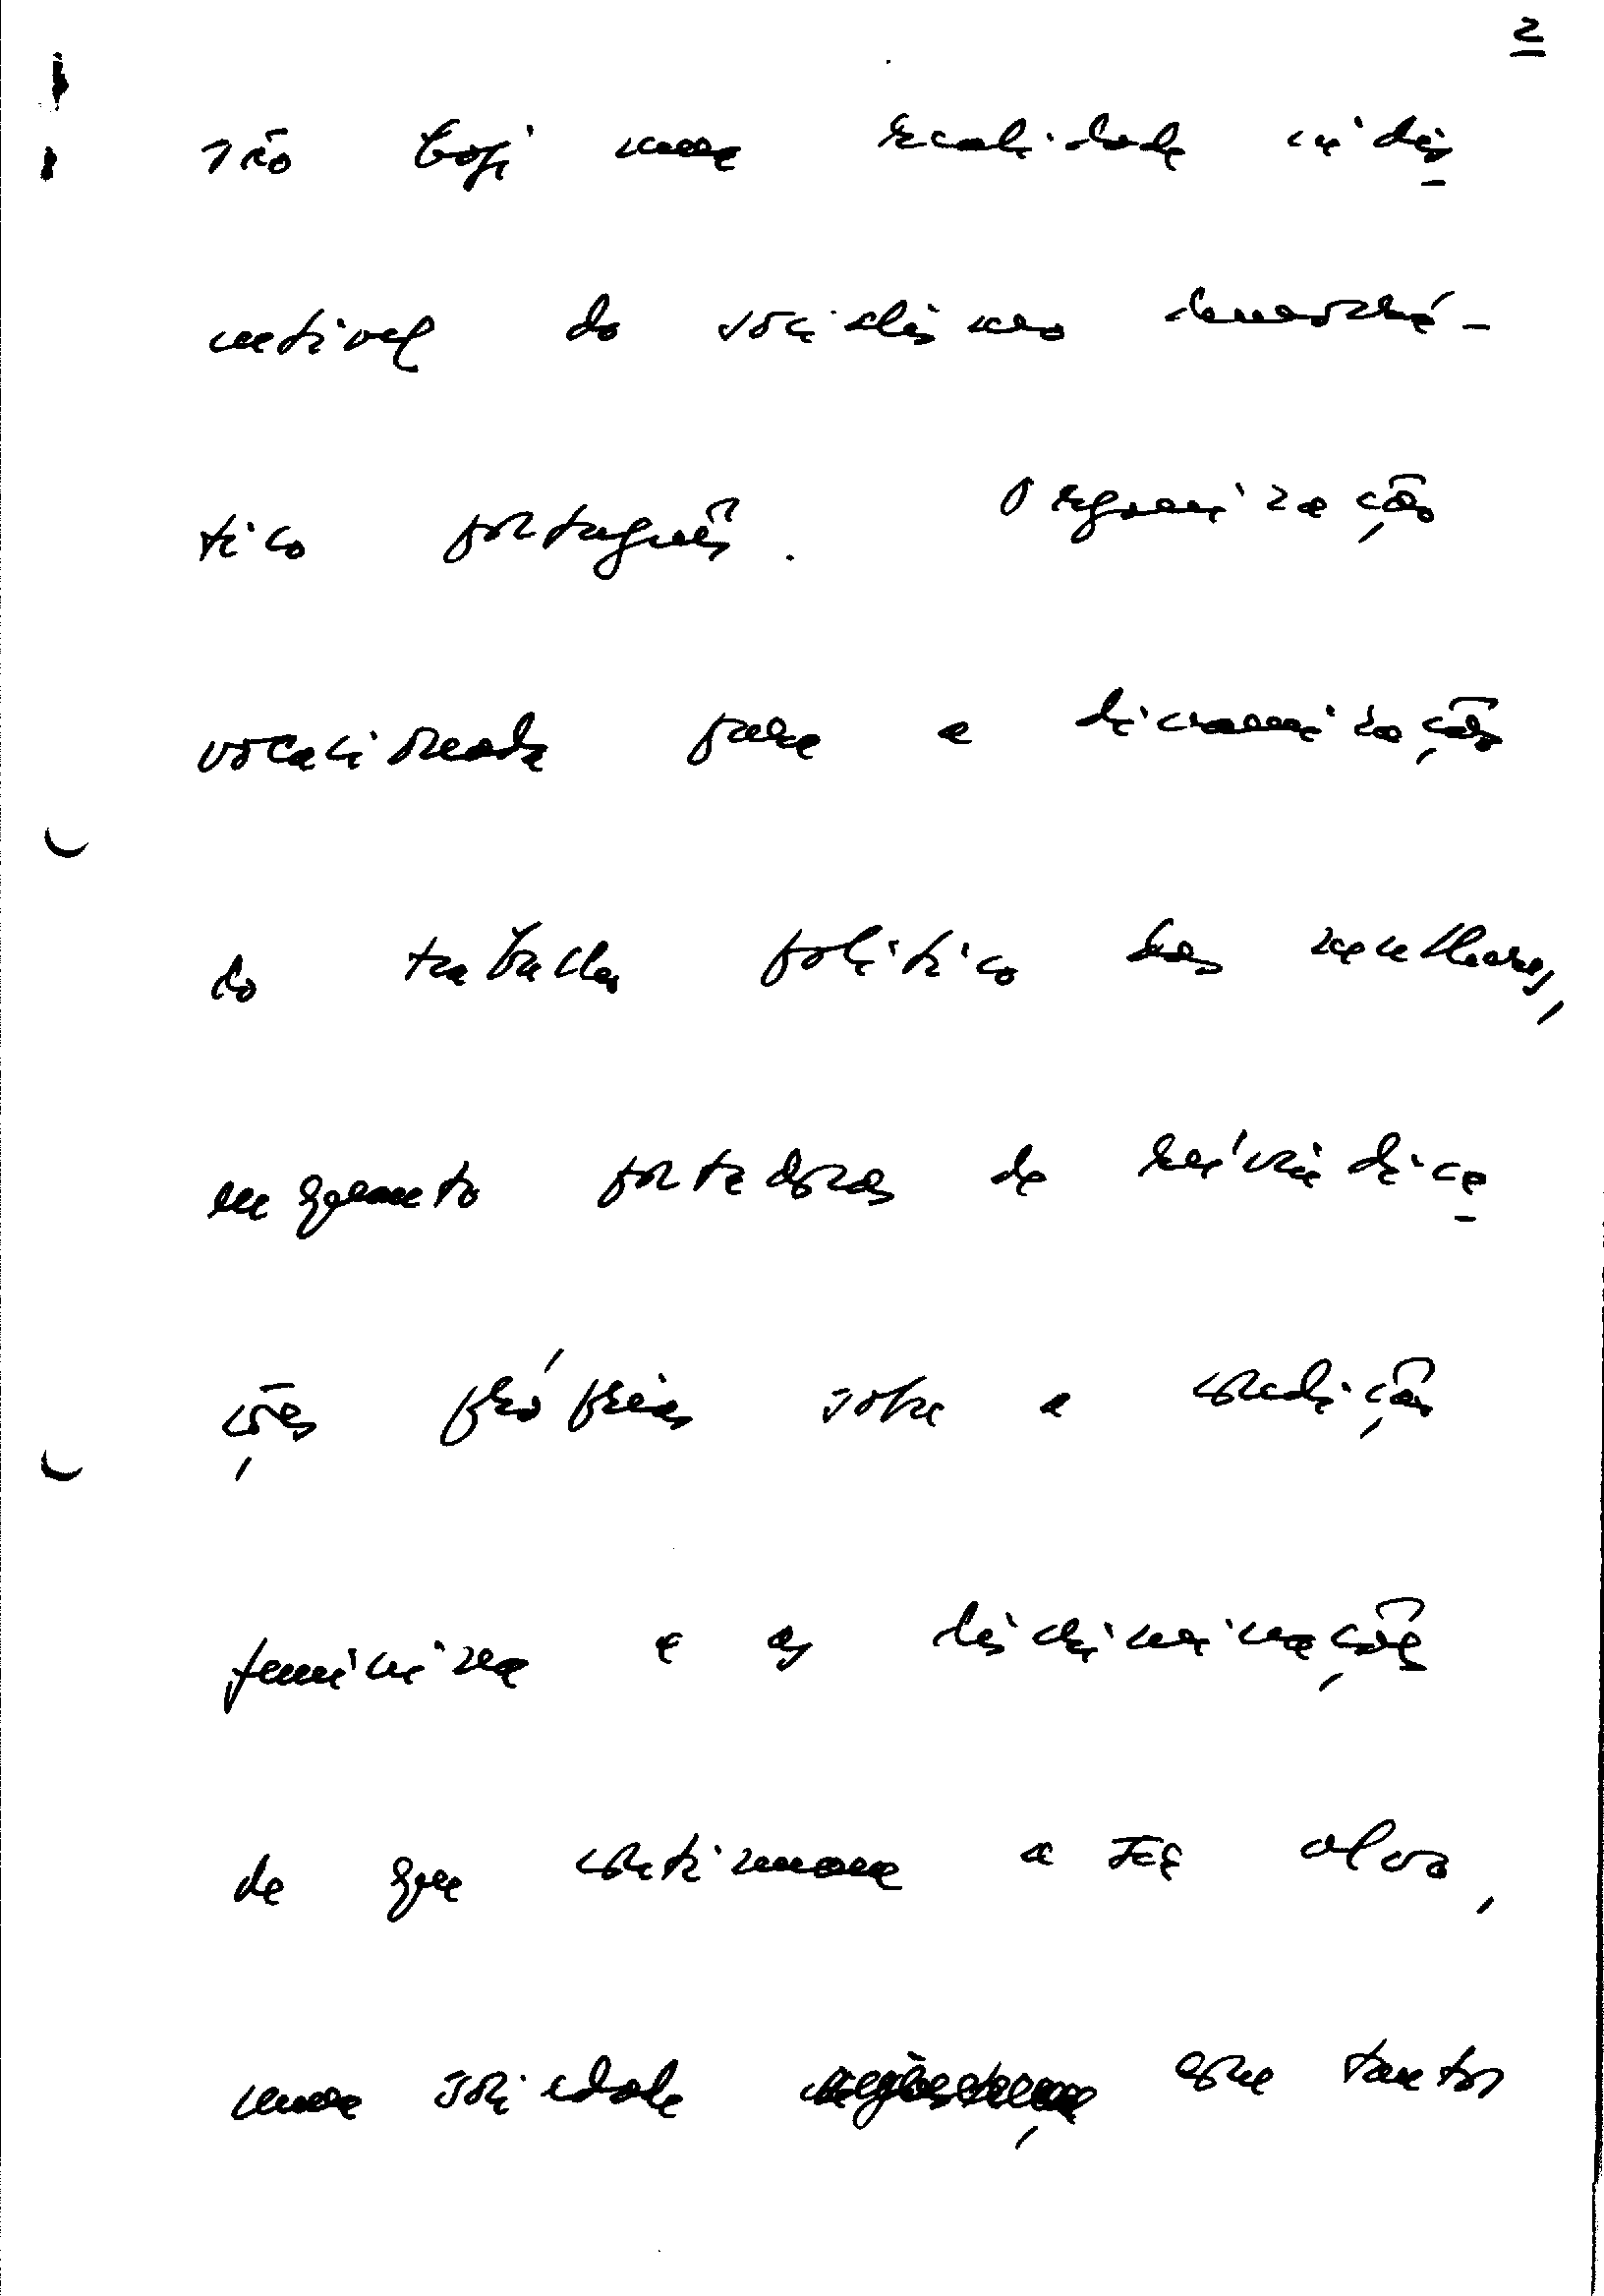 2
são hoje uma realidade indes
mentível do socialismo democrá-
tico português. Organização
vocacionada para a dinamização
do trabalho político das mulheres,
enquanto portadoras de reivindica
ções próprias sobre a condição
feminina e as discriminações
de que continuam a ser alvo,
numa sociedade com tantos